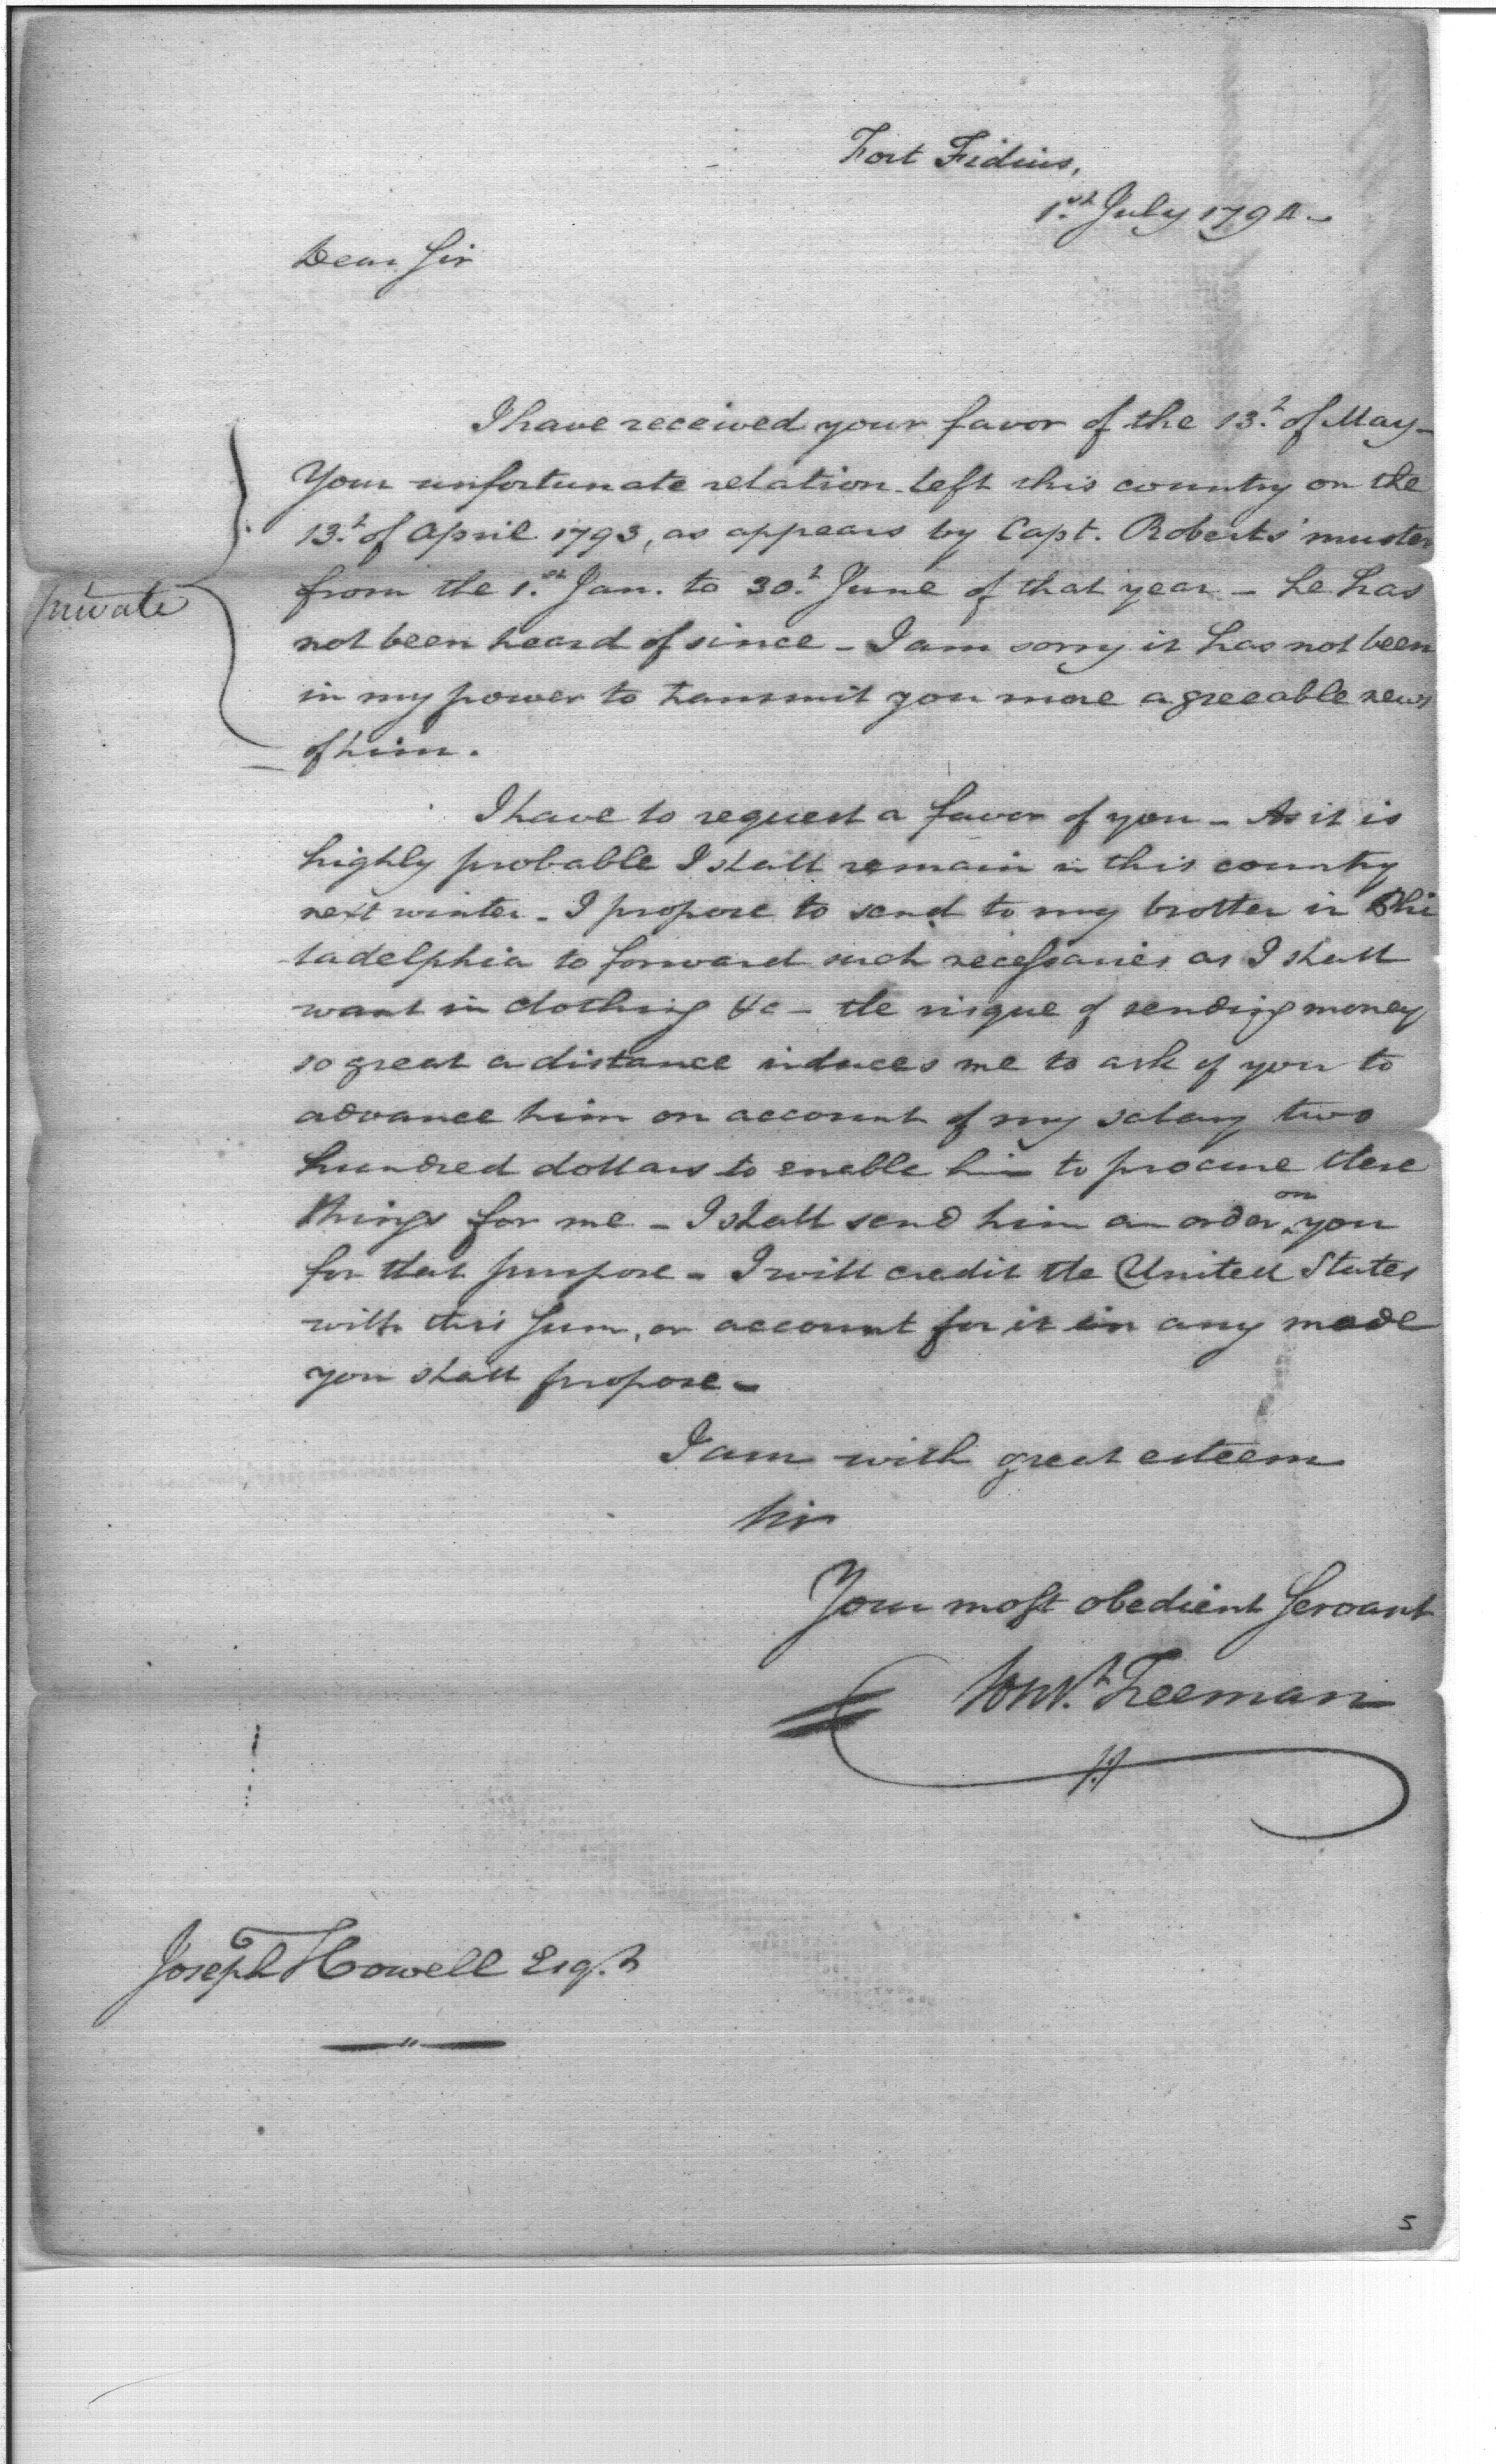 Fort Fidius,
1st July 1794 -
Dear Sir
I have received your favor of the 13.h of May -
Your unfortunate relation left this country on the
13.h of April 1793, as appears by Capt. Roberts' muster
from the 1.st Jan. to 30.h June of that year - he has
private
not been heard of since - I am sorry it has not been
in my power to transmit you more agreeable news
of him.
I have to request a favor of you - As it is
highly probable I shall remain in this country
next winter - I propose to send to my brother in Phi
-ladelphia to forward such necessaries as I shall
want in clothing &c - the risque of sending money
so great a distance induces me to ask of you to
advance him on account of my salary two
hundred dollars to enable him to procure these
things for me - I shall send him an order on you
for that purpose - I will credit the United States
with this sum, or account for it in any mode
you shall propose -
I am with great esteem
Sir
Your most obedient Servant
Const. Freeman
Joseph Howell Esq.r
5